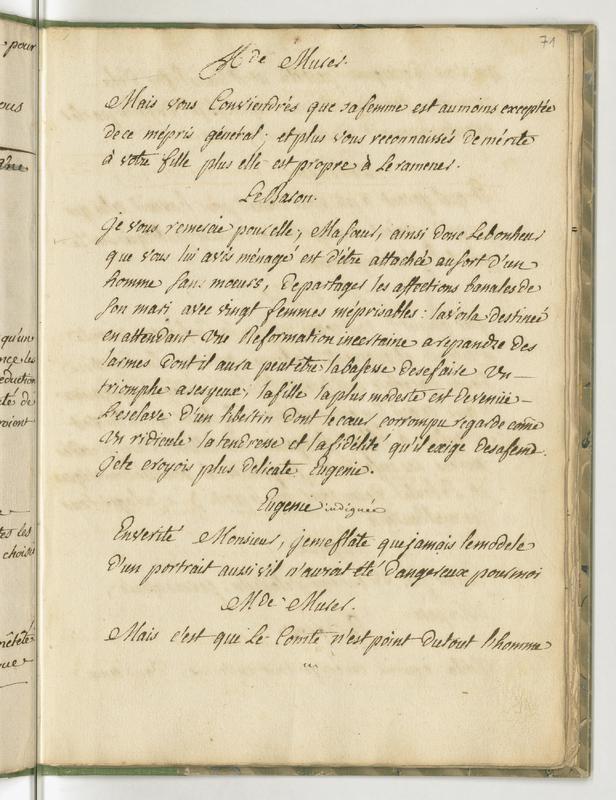 71
Mde Murer.
Mais vous Conviendrés que sa femme est au moins exceptée
de ce mépris général; et plus vous reconnaissés de mérite
à votre fille plus elle est propre à Le ramener.
Le Baron.
Je vous remercie pour elle, Ma sœur, ainsi donc Le bonheur
que vous lui avés ménagé est d'être attachée au sort d'un
homme sans mœurs, De partager les affections banales de
son mari avec vingt femmes méprisables: la voila destineé
en attendant Une Reformation incertaine a repandre des
larmes Dont il aura peut etre la bassesse de se faire Un
triomphe a ses yeux, la fille la plus modeste est devenüe
L'esclave D'un libertin Dont le cœur corrompu regarde come
Un ridicule la tendresse et la fidélité qu'il exige de sa feme.
Je te croyois plus delicate Eugenie.
Eugenie indignée
En verité Monsieur, je me flate que jamais le modele
D'un portrait aussi vil n'auroit été Dangereux pour moi
Mde Murer.
Mais c'est que Le Comte n'est point Du tout l'homme
pour
ous
qu'un
nce les
eduction
te de
roient
tes les
choisi